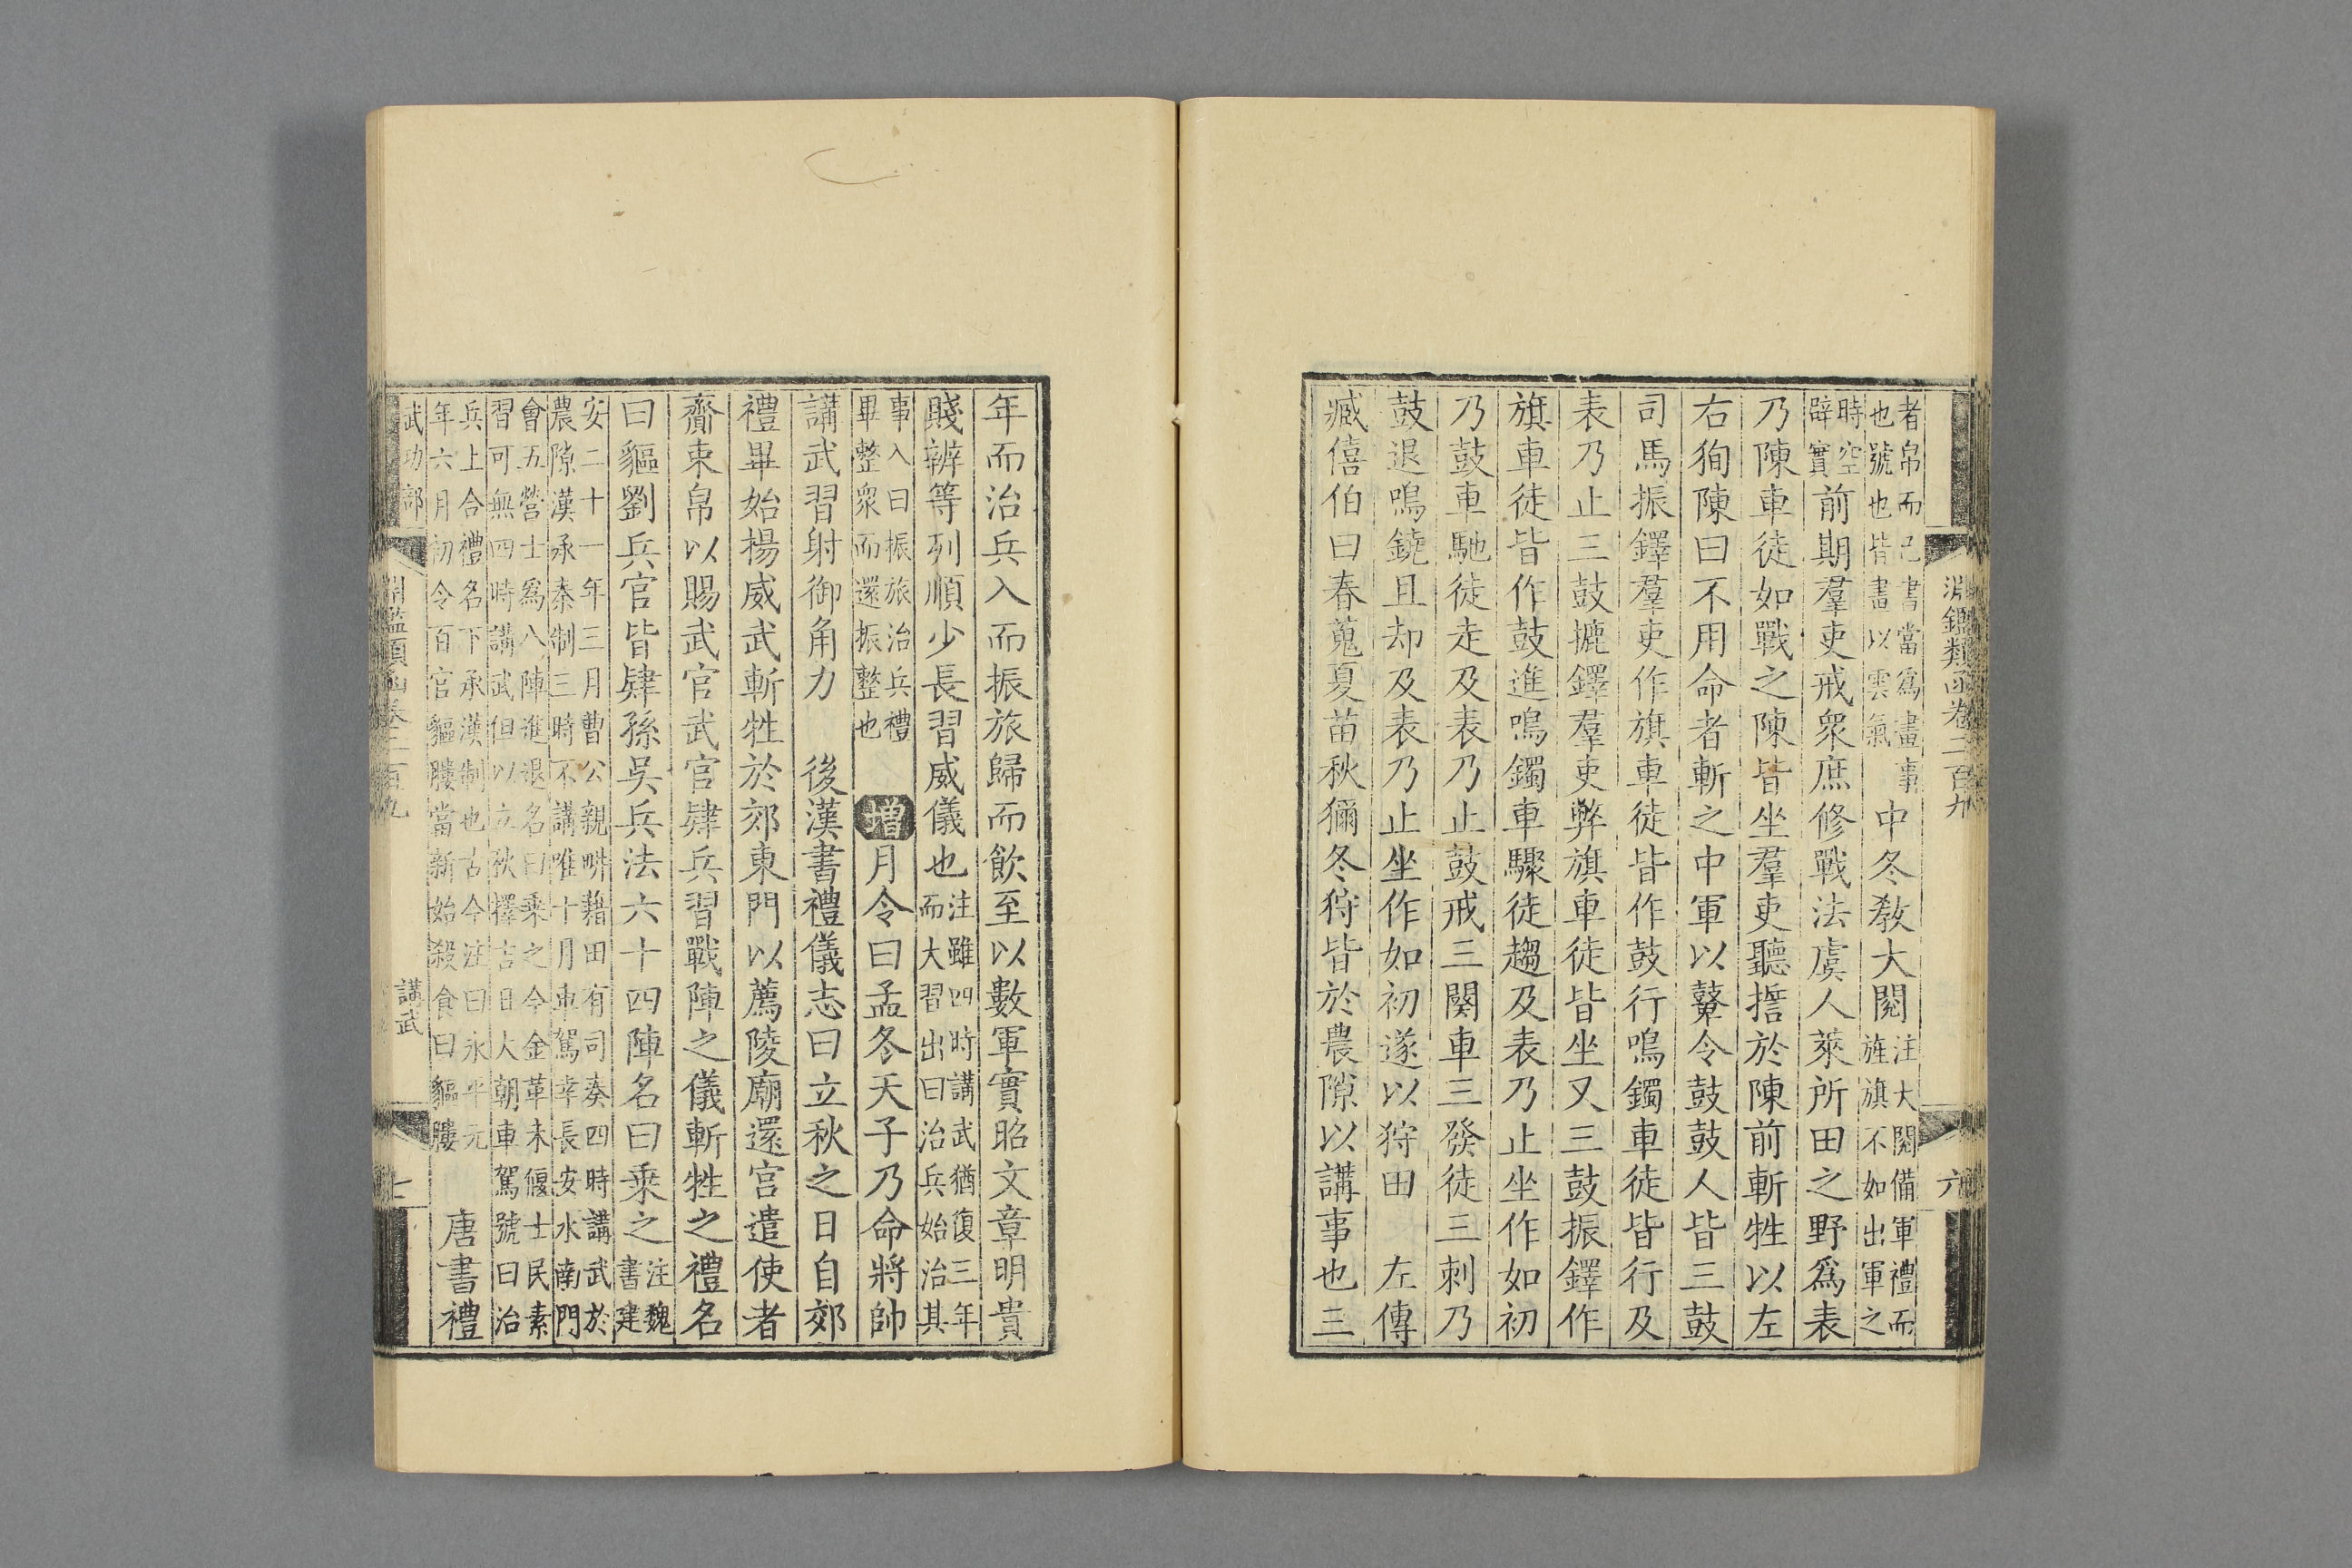 淵鑑類函卷二百九
六
者帛而已書當爲畫事
也號也皆畫以雲氣
中冬敎大閱
注大閱備軍禮而
旌旗不如出軍之
時空
辟實
前期羣吏戒衆庶修戰法虞人萊所田之野爲表
乃陳車徒如戰之陳皆坐羣吏聽誓於陳前斬牲以左
右狥陳曰不用命者斬之中軍以鼙令鼓鼓人皆三鼓
司馬振鐸羣吏作旗車徒皆作鼓行鳴鐲車徒皆行及
表乃止三鼓摝鐸羣吏弊旗車徒皆坐又三鼓振鐸作
旗車徒皆作鼓進鳴鐲車驟徒趨及表乃止坐作如初
乃鼓車馳徒走及表乃止鼓戒三闋車三發徒三刺乃
鼓退鳴鐃且却及表乃止坐作如初遂以狩田　左傳
臧僖伯曰春蒐夏苗秋獮冬狩皆於農隙以講事也三
年而治兵入而振旅歸而飲至以數軍實昭文章明貴
賤辨等列順少長習威儀也
注雖四時講武猶復三年
而大習出曰治兵始治其
事入曰振旅治兵禮
畢整衆而還振整也
增月令曰孟冬天子乃命將帥
講武習射御角力　後漢書禮儀志曰立秋之日自郊
禮畢始揚威武斬牲於郊東門以薦陵廟還宫遣使者
齎束帛以賜武官武官肄兵習戰陣之儀斬牲之禮名
曰貙劉兵官皆肄孫吳兵法六十四陣名曰乘之
注魏
書建
安二十一年三月曹公親畊藉田有司奏四時講武於
農隙漢承秦制三時不講唯十月車駕幸長安水南門
會五營士爲八陣進退名曰乘之今金革未偃士民素
習可無四時講武但以立秋擇吉日大朝車駕號曰治
兵上合禮名下承漢制也古今注曰永平元
年六月初令百官貙膢當新始殺食曰貙膢
唐書禮
武功部
淵鑑類函卷二百九
講武
七